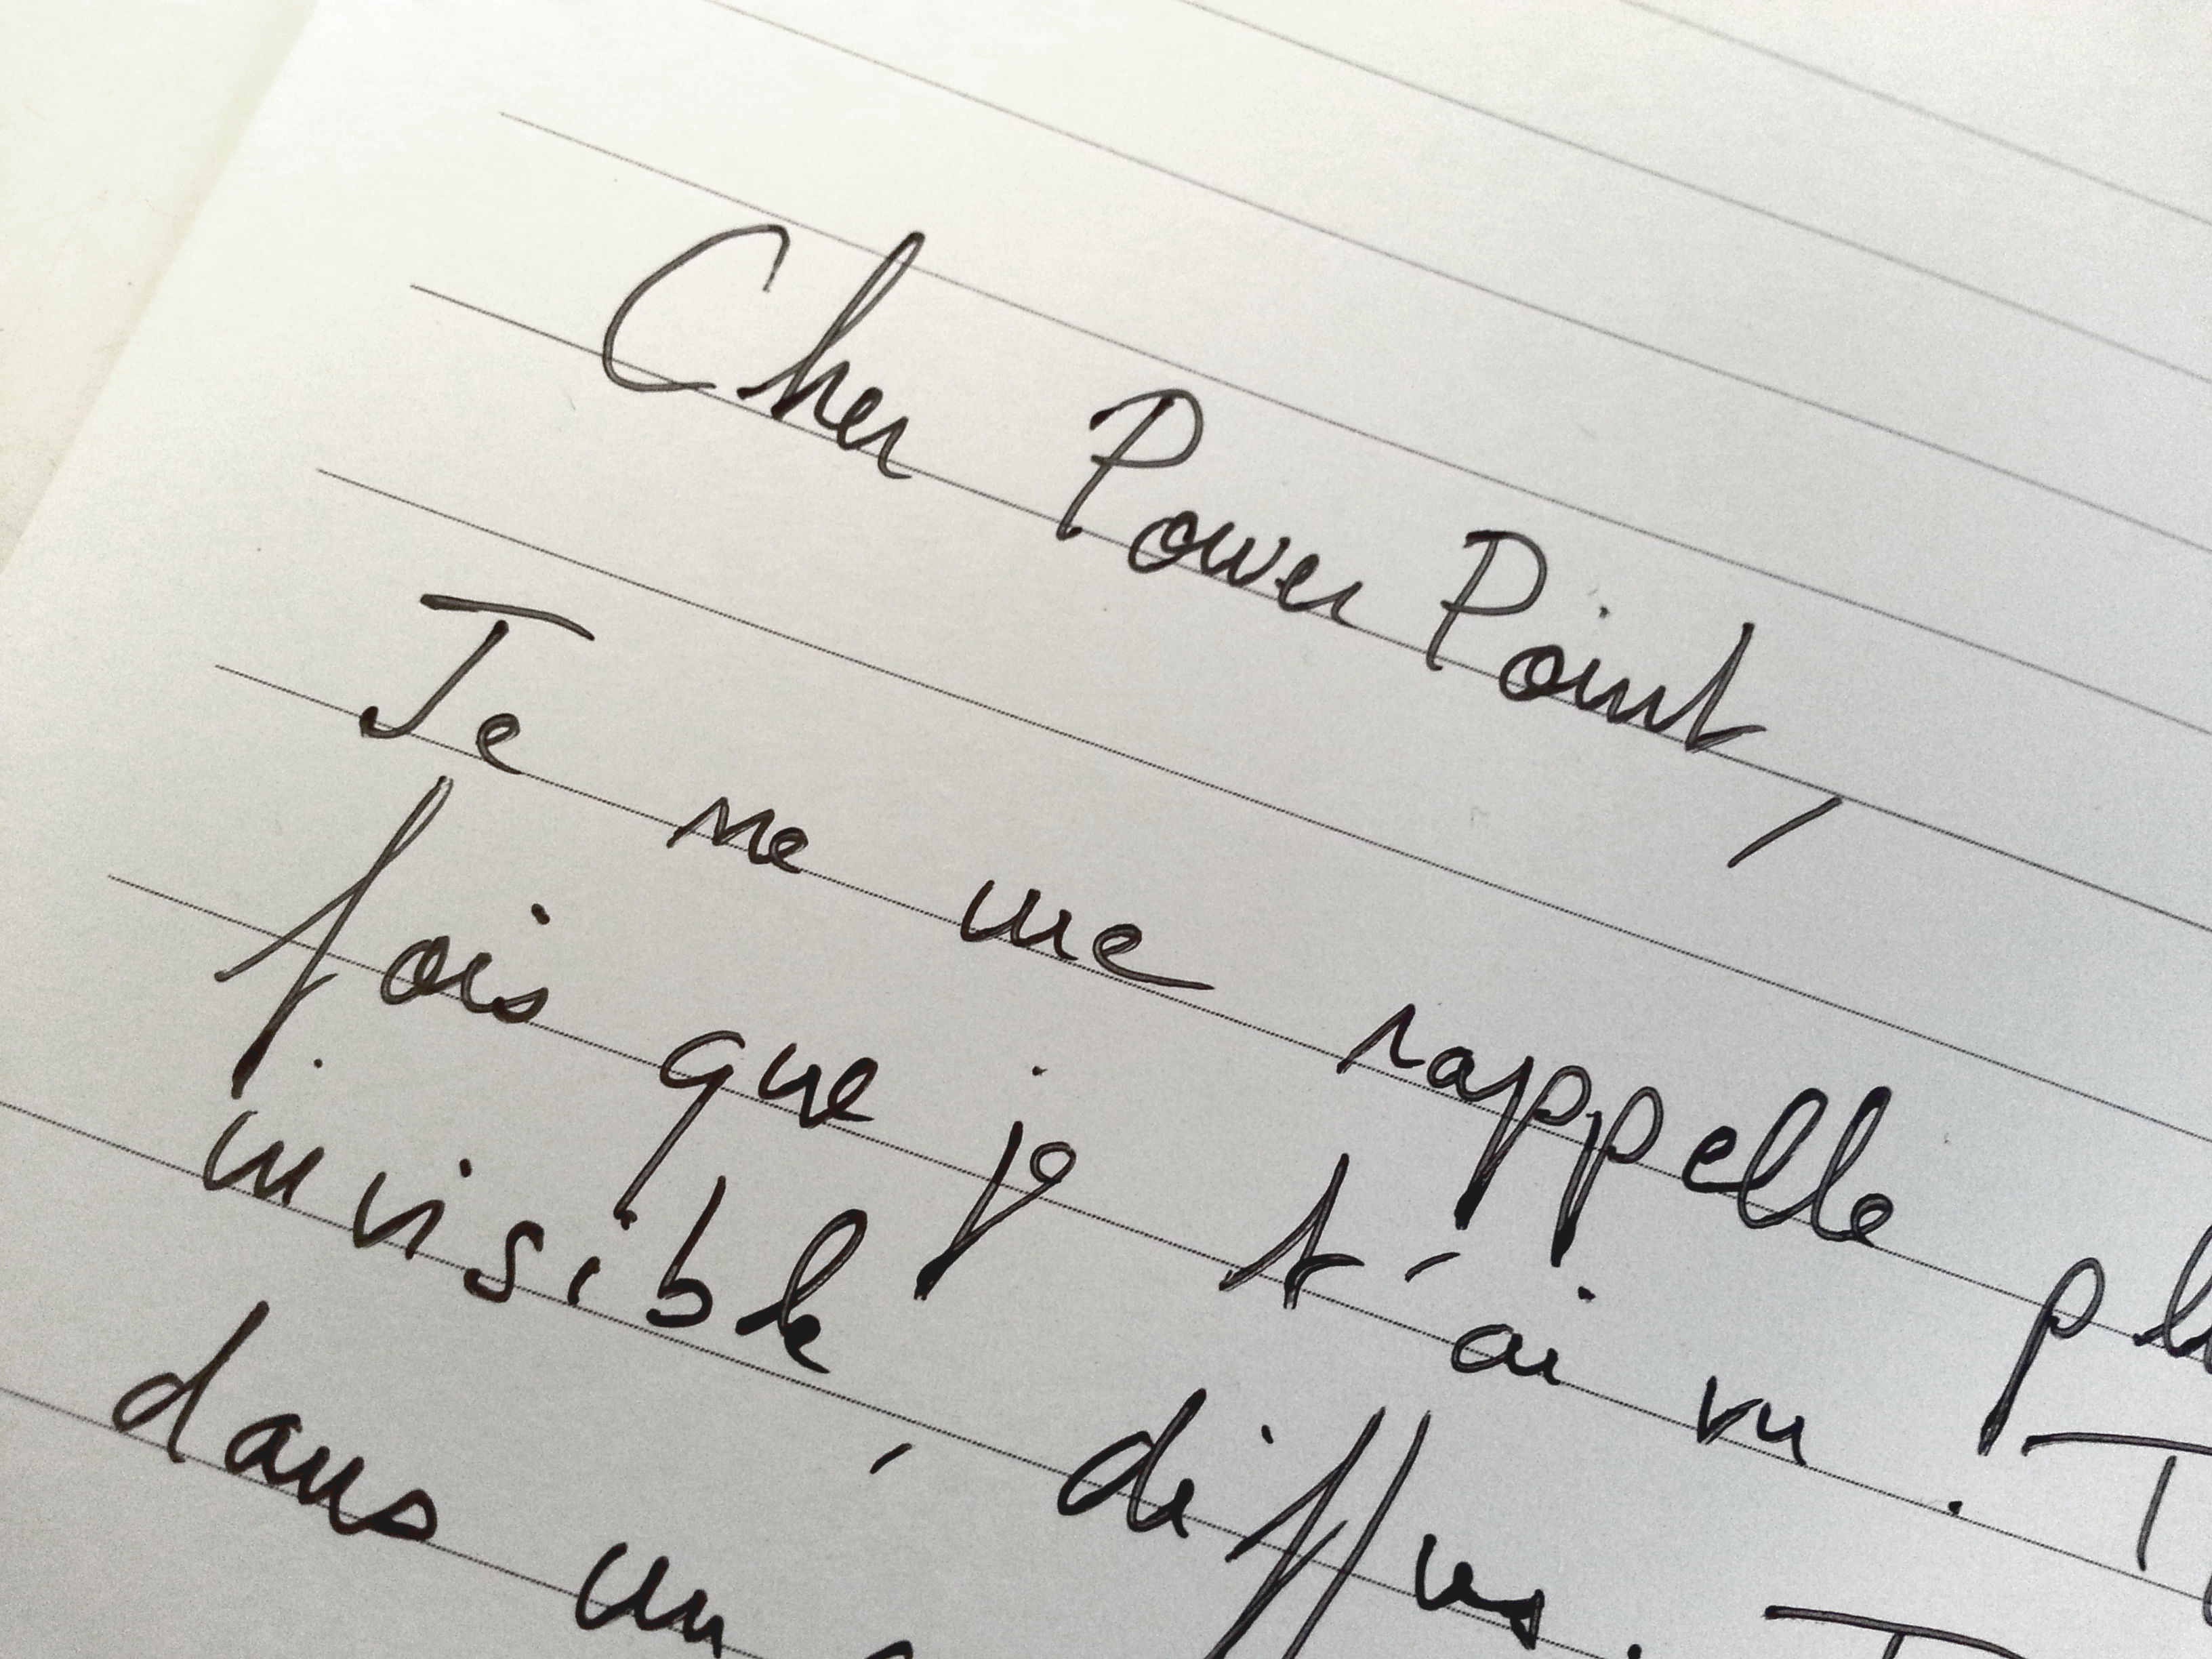 Cher PowerPoint,
Je ne me rappelle
fois que je t'ai vu.
invisible, diffus.
dans un